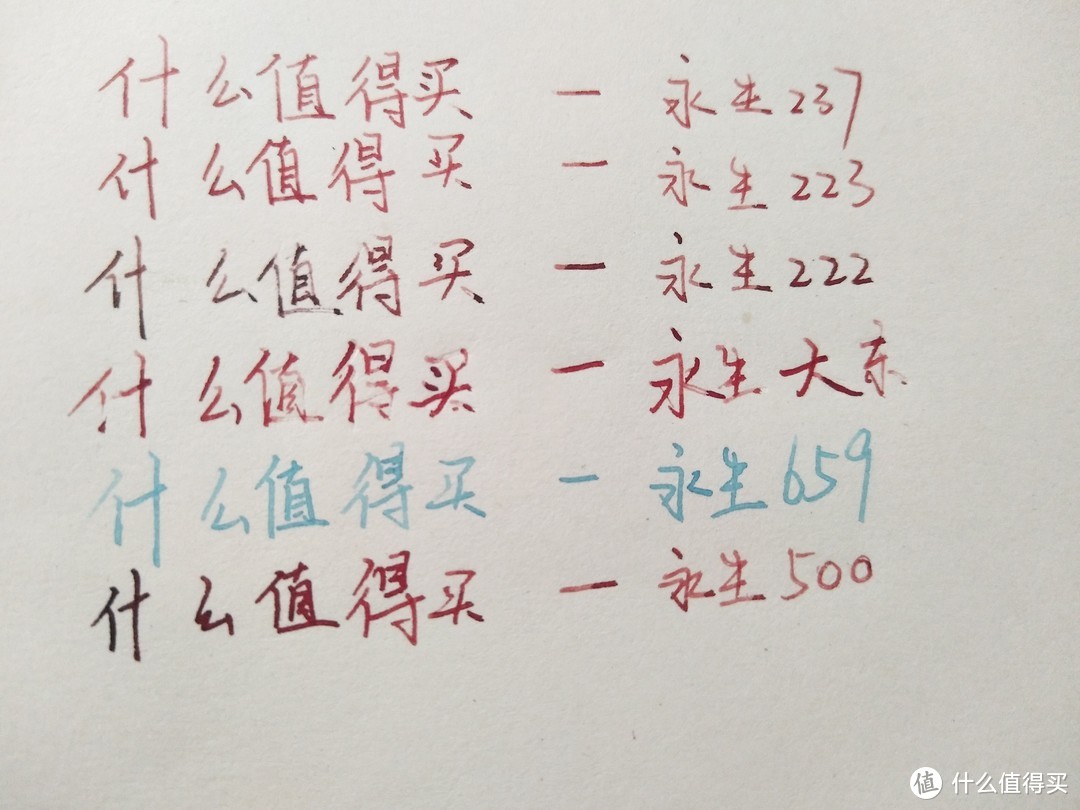 什么值得买 一 永生237
什么值得买 一 永生223
什么值得买 一 永生222
什么值得买 一 永生大东
什么值得买 一 永生659
什么值得买 一 永生500
值 什么值得买